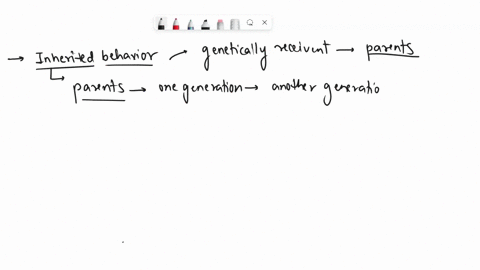 → Inherited behavior → genetically receivent → parents
↳ parents → one generation → another generatio